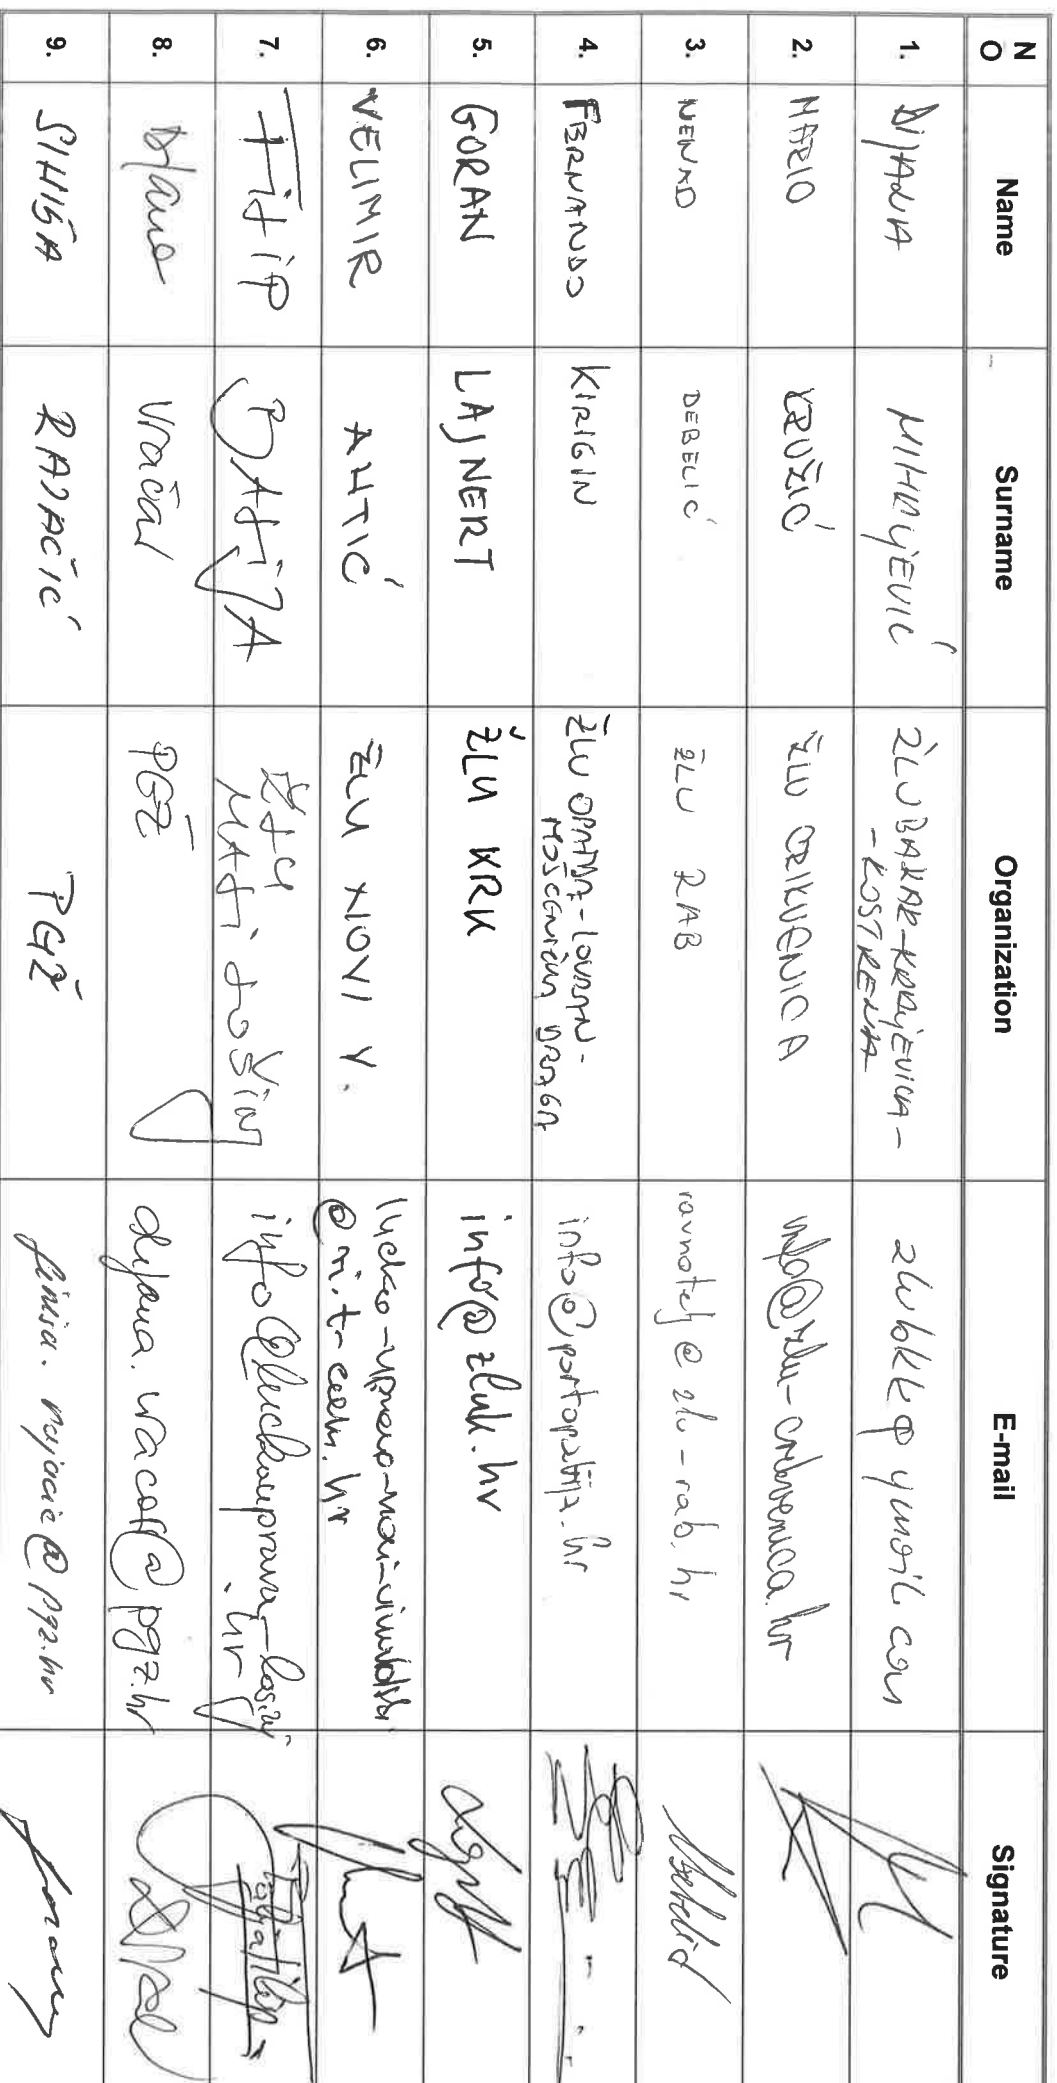 NO Name Surname Organization E-mail Signature
1. DIJANA MIHALJEVIĆ ŽLU BAKAR-KRALJEVICA-
-KOSTRENA
2. MARIO KRUŽIĆ ŽLU CRIKVENICA info@zlu-crikvenica.hr
3. NENAD DEBELIĆ ŽLU RAB ravnatelj@zlu-rab.hr
4. FERNANDO KIRIGIN ŽLU OPATIJA-LOVRAN-
MOŠĆENIČKA DRAGA info@portopatija.hr
5. GORAN LAJNERT ŽLU KRK info@zluk.hr
6. VELIMIR ANTIĆ ŽLU NOVI V.
@ri.t-com.hr
7. FiliP BALIJA ŽLU
MALi LOŠiNJ info@luckauprava-losinj
.hr
8. Dijana Vračar PGŽ dijana.vracar@pgz.hr
9. SINIŠA RAJAČIĆ PGŽ sinisa.rajacic@pgz.hr